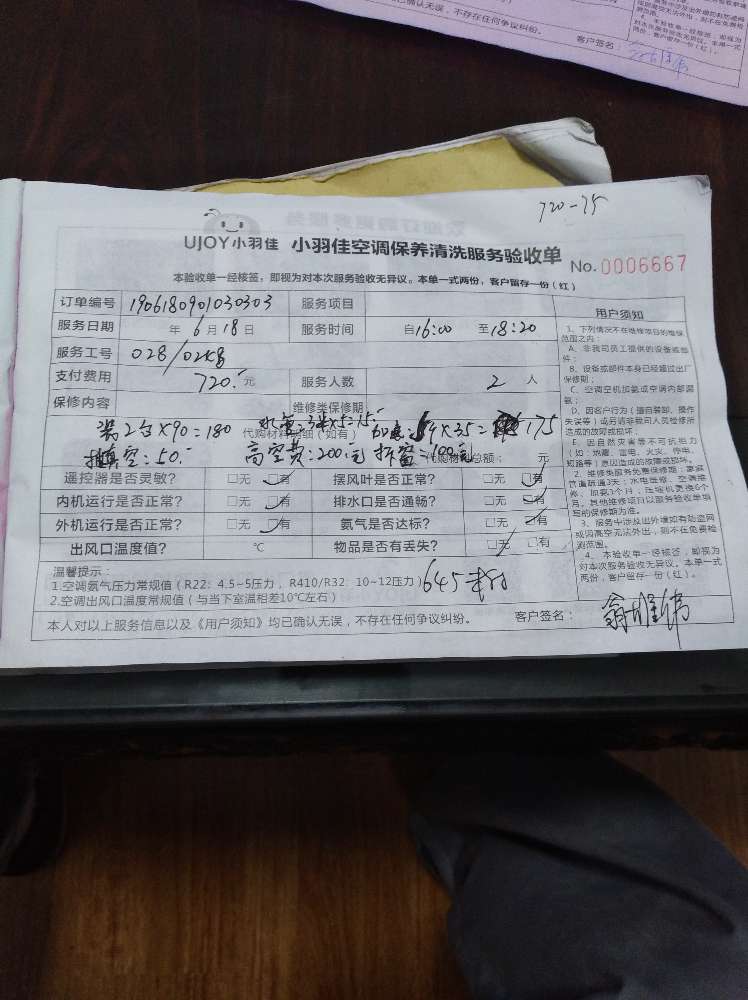 确认无误，不存在任何争议纠纷。
客户签名：
720-75
UJOY小羽佳 小羽佳空调保养清洗服务验收单 No.0006667
本验收单一经核签，即视为对本次服务验收无异议。本单一式两份，客户留存一份（红）
订单编号 1906180901030303 服务项目
服务日期 年 6 月 18 日 服务时间 自16:00 至18:20
服务工号 028/02
支付费用 720. 元 服务人数 2 人
保修内容 维修类保修期
装2台×90=180 水管:3米×5=15
代购材料明细(如有) 5×35=175
抽真空:50. 高空费:200元 拆窗:100元 代购材料总额： 元
遥控器是否灵敏？ □无 □有 摆风叶是否正常？ □无 □有
内机运行是否正常？ □无 □有 排水口是否通畅？ □无 □有
外机运行是否正常？ □无 □有 氨气是否达标？ □无 □有
出风口温度值？ ℃ 物品是否有丢失？ □无 □有
温馨提示：
1.空调氨气压力常规值（R22: 4.5~5压力，R410/R32: 10~12压力）645
2.空调出风口温度常规值（与当下室温相差10℃左右）
本人对以上服务信息以及《用户须知》均已确认无误，不存在任何争议纠纷。 客户签名：
用户须知
1、下列情况不在维修项目的维保
范围之内：
A、非我司员工提供的设备或部
件；
B、设备或部件本身已经超过出厂
保修期；
C、空调空机加氨或空调内部漏
氨；
D、因客户行为（擅自装卸、操作
失误等）或另请非我司人员检修所
造成的故障或损坏；
E、因自然灾害等不可抗拒力
（如：地震、雷电、火灾、停电、
短路等）原因造成的故障或损坏。
2、维修类服务免费保修期：家庭
管道疏通3天；水电维修、空调维
修、加氨1个月；压缩机更换6个
月。其他维修项目以服务验收单填
写的保修期为准。
3、服务中涉及出外墙如有防盗网
或因高空无法外出，则不在免费检
测范围。
4、本验收单一经核签，即视为
对本次服务验收无异议。本单一式
两份，客户留存一份（红）。